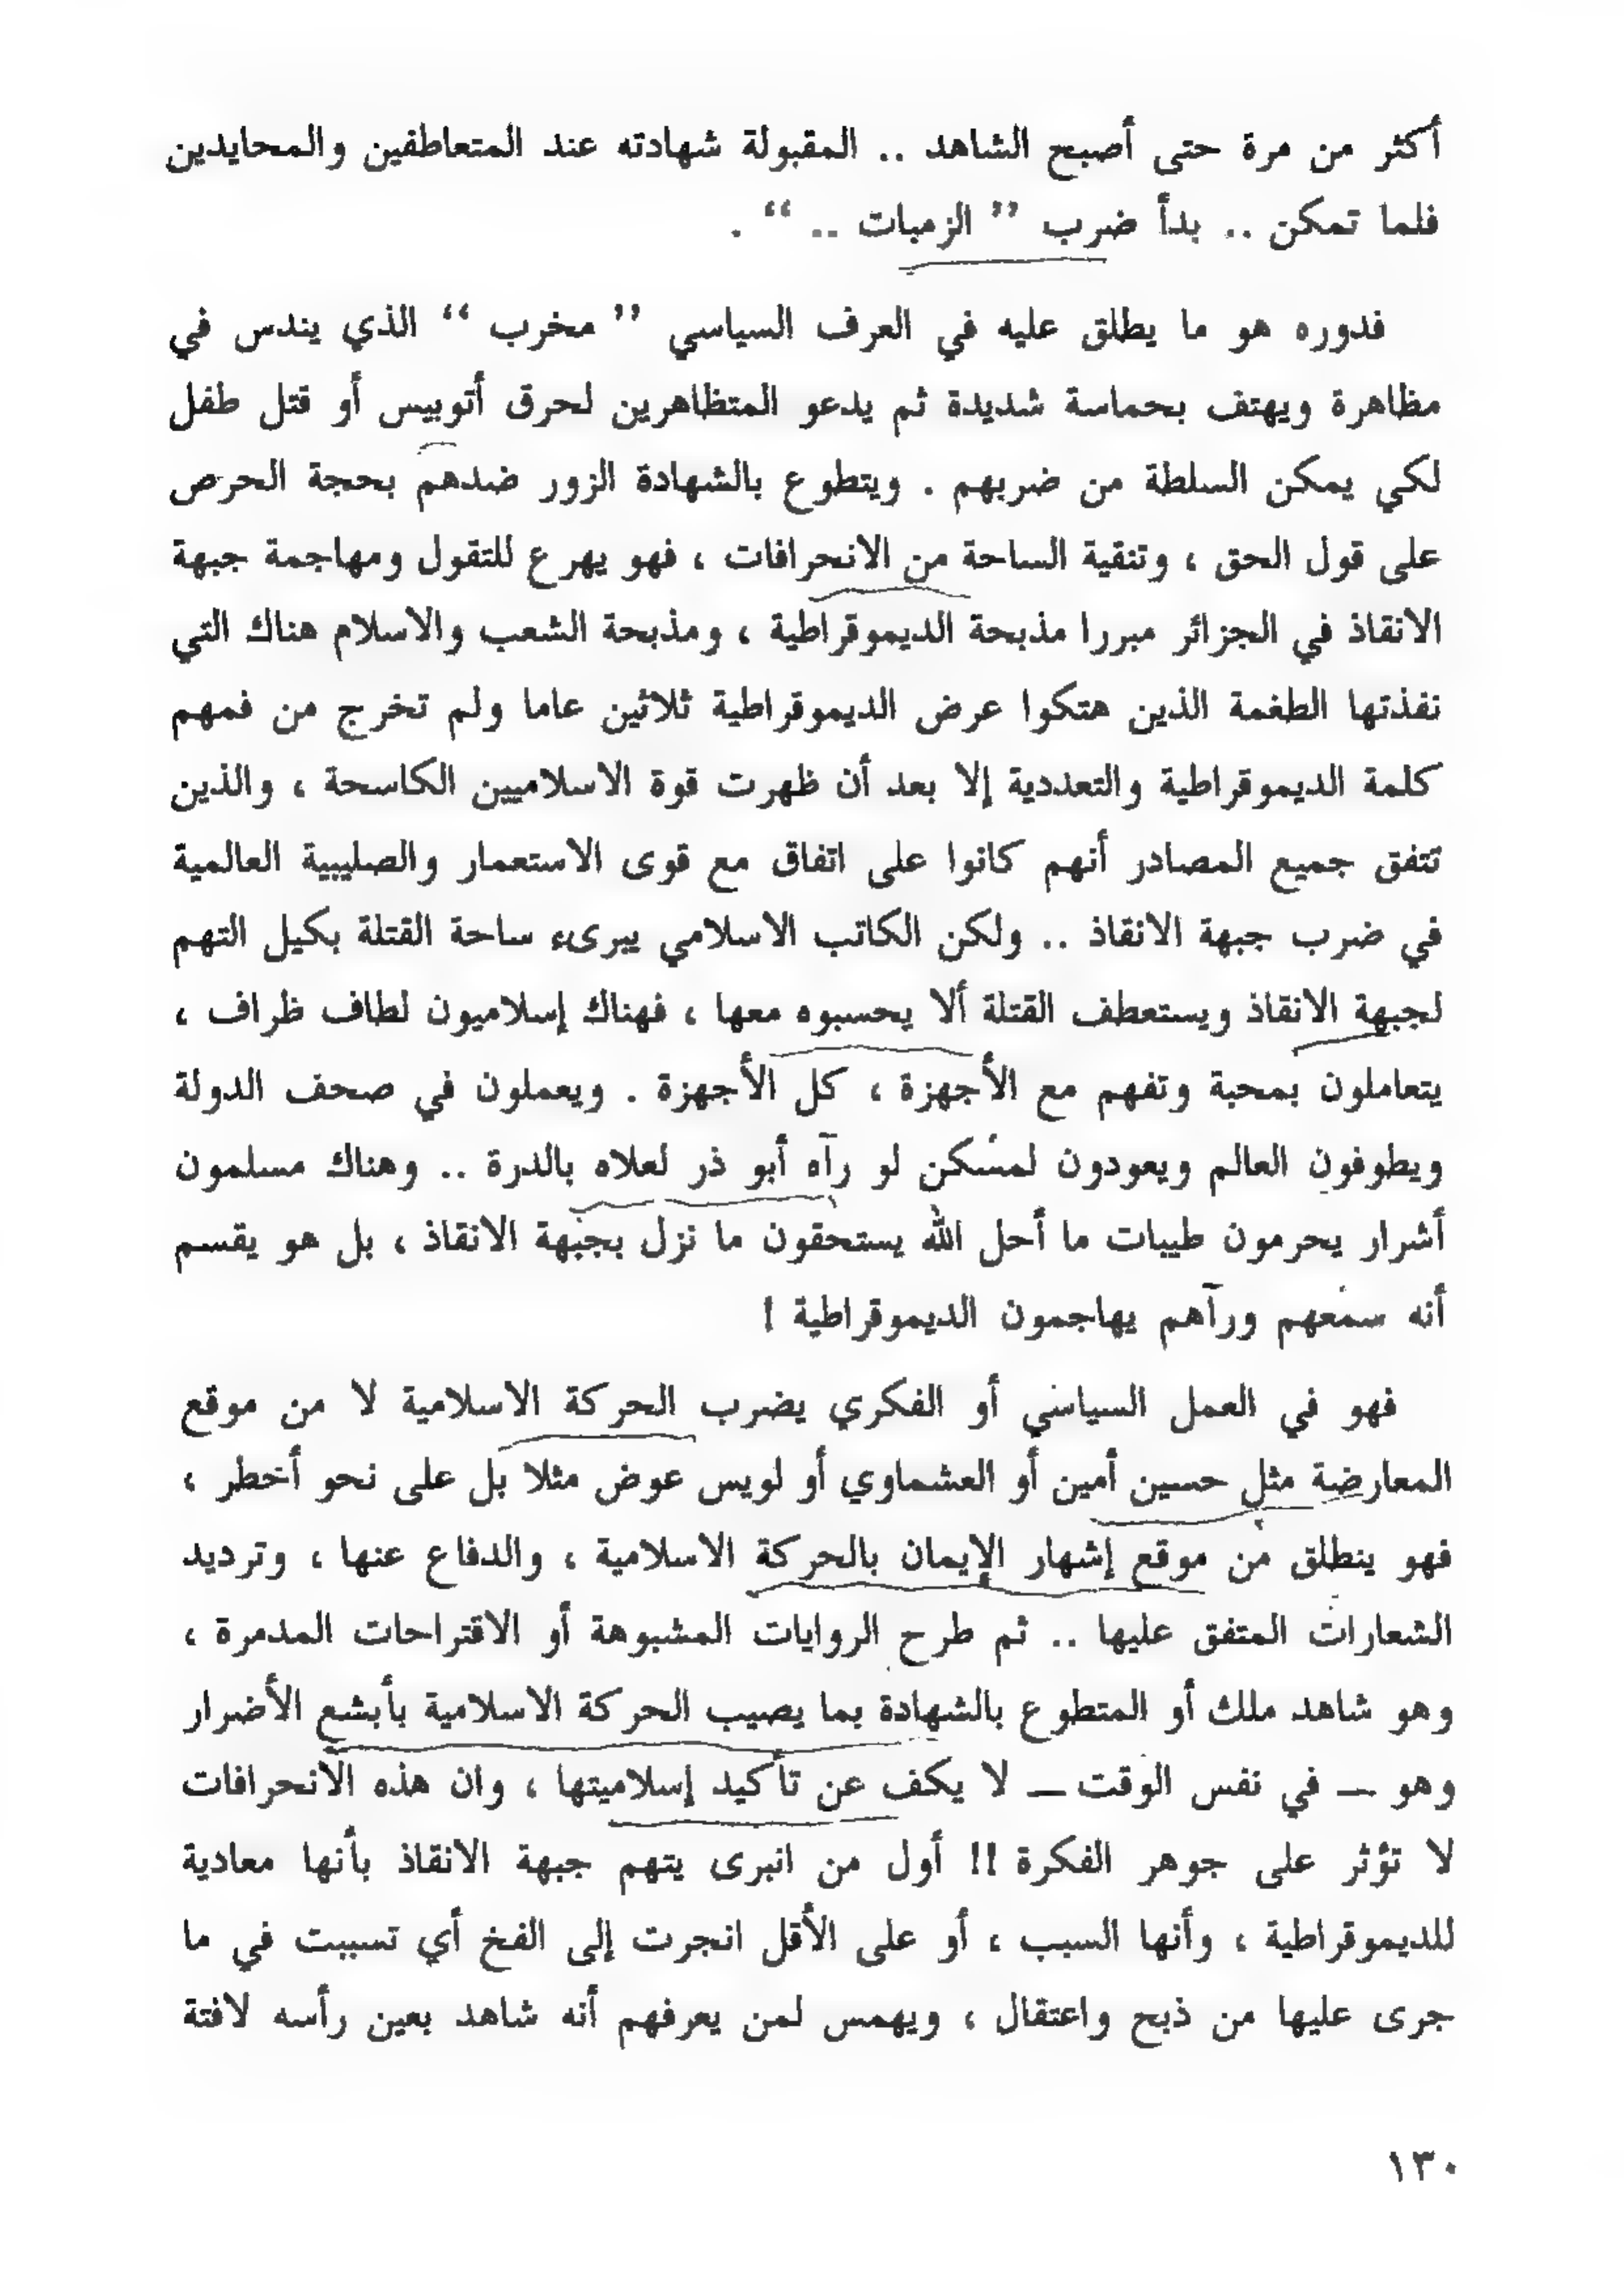 أكثر من مرة حتى أصبح الشاهد .. المقبولة شهادته عند المتعاطفين والمحايدين
فلما تمكن .. بدأ ضرب ” الزمبات .. “ .
فدوره هو ما يطلق عليه في العرف السياسي ” مخرب “ الذي يندس في
مظاهرة ويهتف بحماسة شديدة ثم يدعو المتظاهرين لحرق أتوبيس أو قتل طفل
لكي يمكن السلطة من ضربهم . ويتطوع بالشهادة الزور ضدهم بحجة الحرص
على قول الحق ، وتنقية الساحة من الانحرافات ، فهو يهرع للتقول ومهاجمة جبهة
الانقاذ في الجزائر مبررا مذبحة الديموقراطية ، ومذبحة الشعب والاسلام هناك التي
نفذتها الطغمة الذين هتكوا عرض الديموقراطية ثلاثين عاما ولم تخرج من فمهم
كلمة الديموقراطية والتعددية إلا بعد أن ظهرت قوة الاسلاميين الكاسحة ، والذين
تتفق جميع المصادر أنهم كانوا على اتفاق مع قوى الاستعمار والصليبية العالمية
في ضرب جبهة الانقاذ .. ولكن الكاتب الاسلامي يبرىء ساحة القتلة بكيل التهم
لجبهة الانقاذ ويستعطف القتلة ألا يحسبوه معها ، فهناك إسلاميون لطاف ظراف ،
يتعاملون بمحبة وتفهم مع الأجهزة ، كل الأجهزة . ويعملون في صحف الدولة
ويطوفون العالم ويعودون لمسكن لو رآه أبو ذر لعلاه بالدرة .. وهناك مسلمون
أشرار يحرمون طيبات ما أحل الله يستحقون ما نزل بجبهة الانقاذ ، بل هو يقسم
أنه سمعهم ورآهم يهاجمون الديموقراطية !
فهو في العمل السياسي أو الفكري يضرب الحركة الاسلامية لا من موقع
المعارضة مثل حسين أمين أو العشماوي أو لويس عوض مثلا بل على نحو أخطر ،
فهو ينطلق من موقع إشهار الإيمان بالحركة الاسلامية ، والدفاع عنها ، وترديد
الشعارات المتفق عليها .. ثم طرح الروايات المشبوهة أو الاقتراحات المدمرة ،
وهو شاهد ملك أو المتطوع بالشهادة بما يصيب الحركة الاسلامية بأبشع الأضرار
وهو — في نفس الوقت — لا يكف عن تأكيد إسلاميتها ، وان هذه الانحرافات
لا تؤثر على جوهر الفكرة !! أول من انبرى يتهم جبهة الانقاذ بأنها معادية
للديموقراطية ، وأنها السبب ، أو على الأقل انجرت إلى الفخ أي تسببت في ما
جرى عليها من ذبح واعتقال ، ويهمس لمن يعرفهم أنه شاهد بعين رأسه لافتة
١٣٠